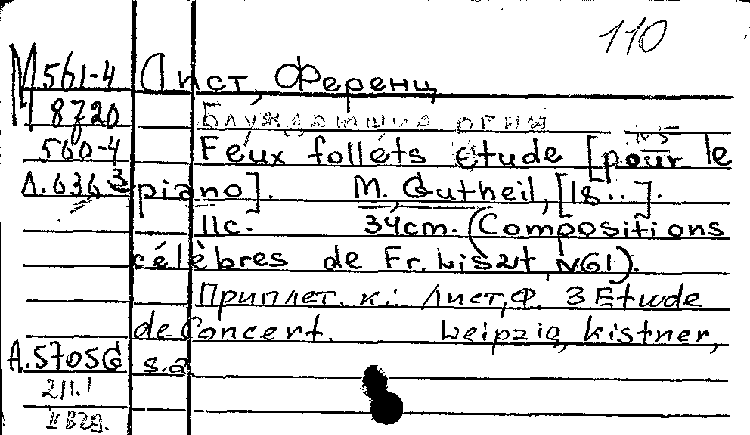 110
М 561-4 Лист, Ференц
8720 Блуждающие огни
560-4 Feux follets étude [pour le
Л.636 piano]. M, Gutheil, [18..].
11с. 34cm. (Compositions
célèbres de Fr. Liszt, №61).
Приплет. к: Лист, Ф. 3 Etude
de Concert. Leipzig, Kistner,
А.57056 s.a